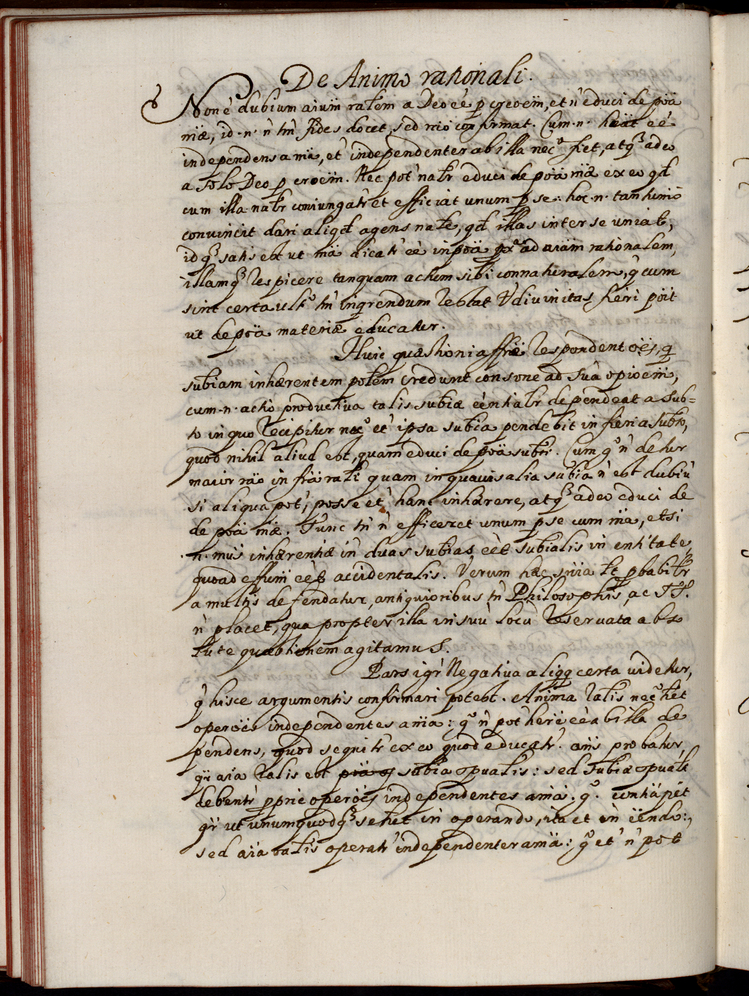 De Animo rationali.
Non ē dubium aīum ralem a Deo eē p creoēm, et n̄ educi de poā
māe, id .n. n̄ tm̄ fides docet, sed rāo confirmat. Cum .n. heāt eē
independens a mā, et independenter ab illa fiet, atq3 adeo
a solo Deo p creoēm. Nec pot nalr educi de poā māe ex eo qd
cum illa nalr coniungatr et efficiat unum p se: hoc .n. tantum
convincit dari aliqd agens nale, qd illas inter se uniat,
idq3 satis est ut mā dicatr eē in poā ad aiām rationalem,
illamq3 respicere tanquam actum sibi connaturalem, cum
sint certa tm̄ inqrendum restat divinitus fieri poīt
ut de poā materiæ educatur.
Huic quæstioni affīe respondent oēs, q
subiam inhærentem polem credunt consone ad suā opioēm,
cum .n. actio productiva talis subiæ eēntialr dependeat a sub-
to in quo recipitur et ipsa subia pendebit in fieri a subto,
quod nihil aliud est, quam educi de poā subti. Cum n̄ detur
maior rāo in rali quam in quavis alia subia n̄ est dubiū
si aliqua pot, posse et hanc inhærere, atq3 adeo educi de
de poā māe. Tunc tm̄ n̄ efficeret unum p se cum mā, etsi
inhærentiæ in duas subias eēt subialis in entitate,
quoad effum eēt accidentalis. Verum hæc snīa pbabiltr
a multis defendatur, antiquioribus tm̄ Philosophis, ac
n̄ placet, qua propter illa in suū locū reservata abso-
lute quæstionem agitamus.
Pars igr Negativa certa videtur,
q hisce argumentis confirmari potest. Anima ralis het
operoēs independentes a mā: n̄ pot in eē ab illa de
pendens, quod sequitr ex eo quod educatr. aīs probatur,
qr aīa ralis est subia spualis: sed subiæ spuali
debentr pprie operoēs independentes a mā. Contīa pēt
qr ut unumquodq3 se het in operando, ita et in eēndo:
sed aīa ralis operatr independenter a mā: et n̄ pot